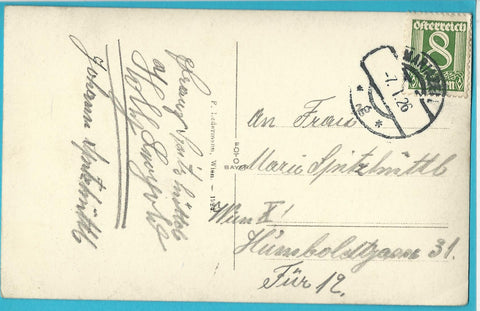 Österreich
8
7. I. 26
An Frau
Marie Spitzhüttl
Wien X!
Humboldtgasse 31.
Tür 12.
P. Ledermann, Wien
Franz Spitzhüttl
Johann Spitzhüttl